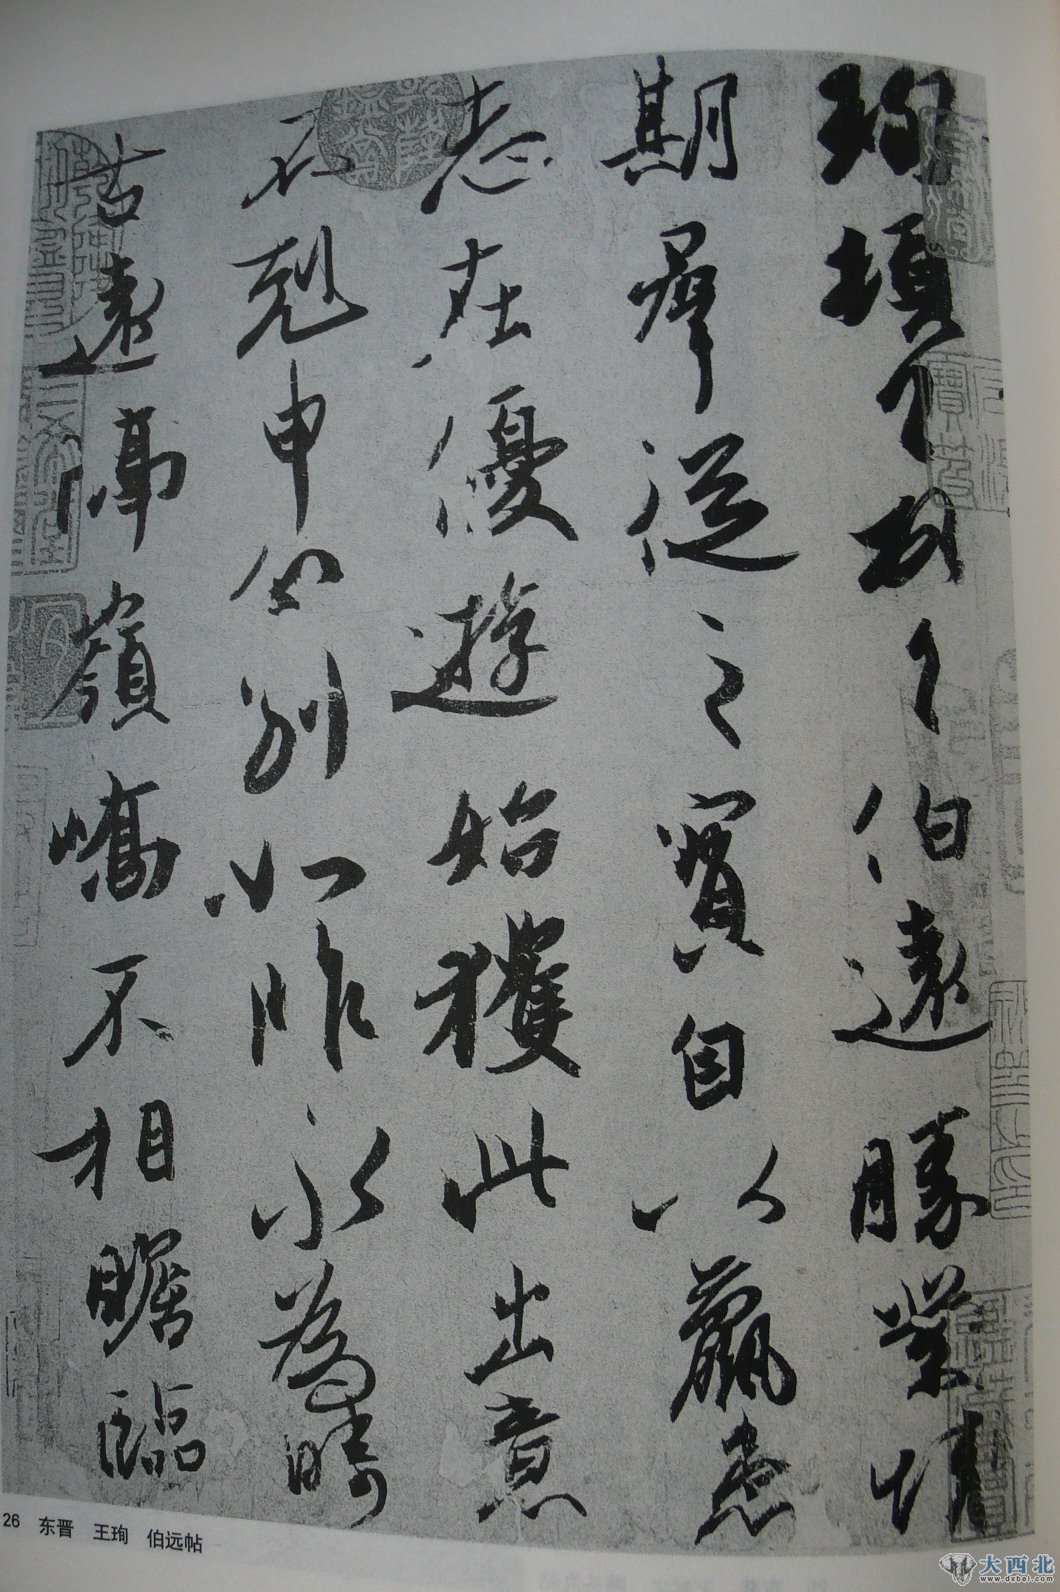 珣頓首頓首伯遠勝業情
期羣從之寶自以羸患
志在優遊始獲此出意
不剋申分別如昨永為疇
古遠隔嶺嶠不相瞻臨
26 东晋 王珣 伯远帖
大西北
www.dxbei.com